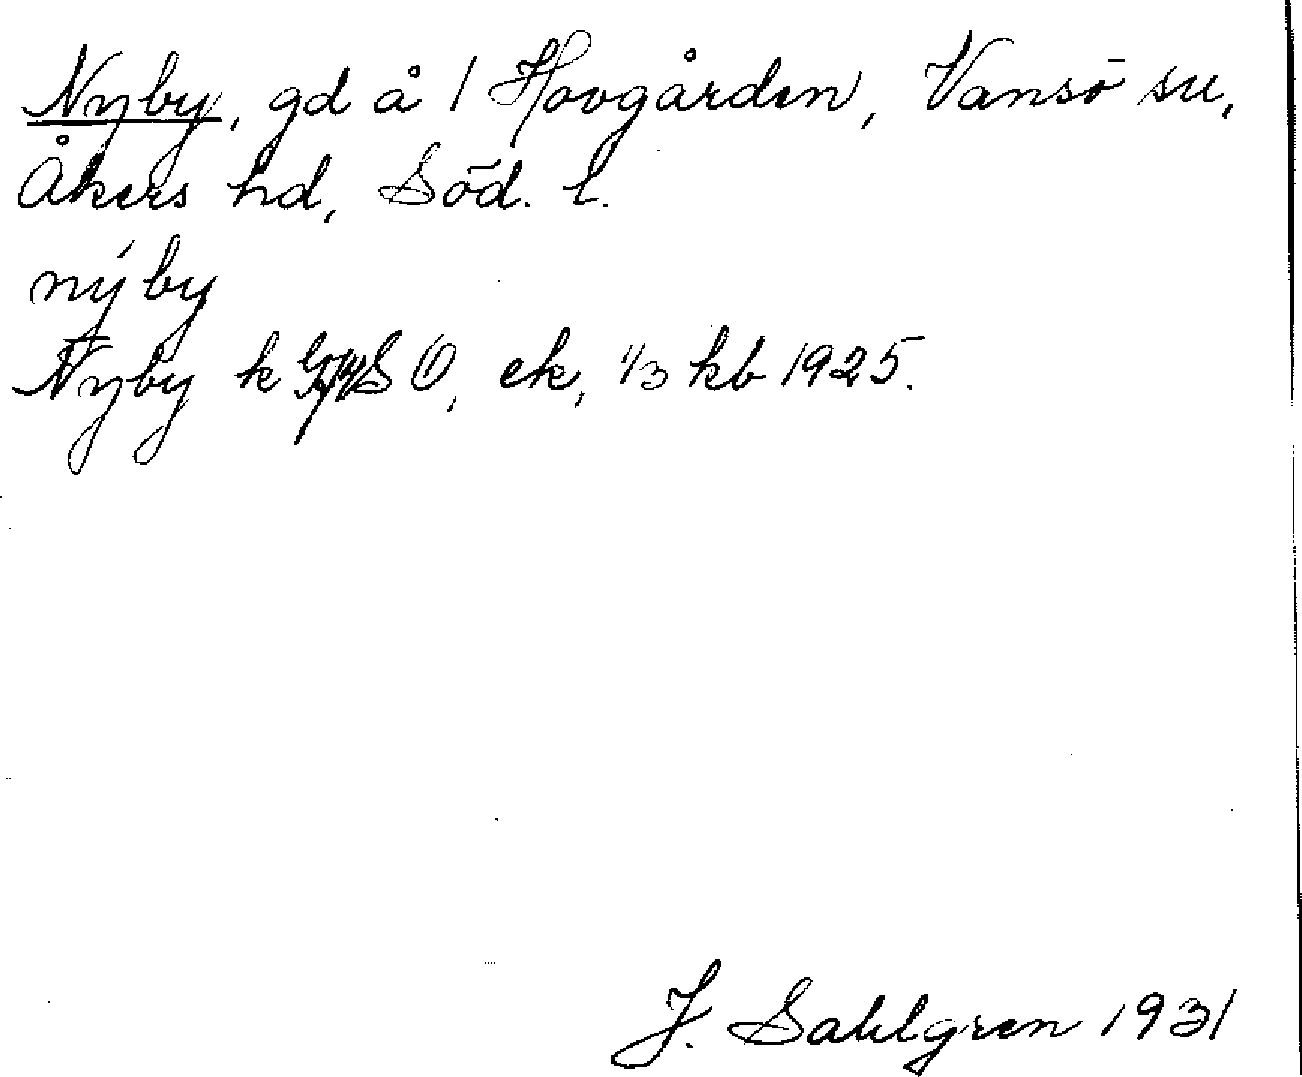 Nyby, gd å 1 Hovgården, Vansö sn,
Åkers hd, Söd. l.
nýby
Nyby k SÖ, ek, 1/3 kb 1925.
J. Sahlgren 1931